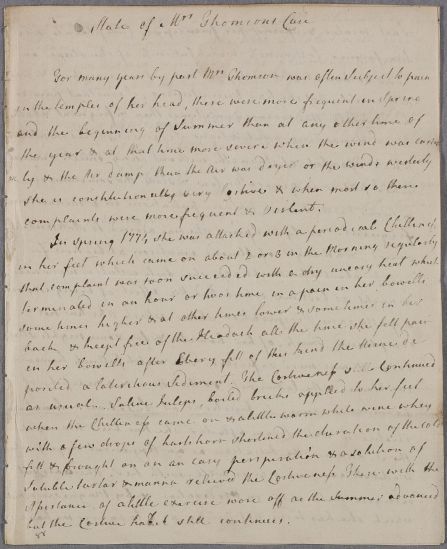 State of Mrs Thomsons Case
For many years by past Mrs Thomson was often subject to pain
in the temples of her head, these were more frequent in Spring
and the beginning of Summer than at any other time of
the year & at that time more severe when the wind was easter
ly & the Air damp than the Air was dryer or the winds westerly
she is constitutionally very Costive & when most so these
complaints were more frequent & violent.
In Spring 1774 she was attacked with a periodical Chillness
in her feet which came on about 2 or 3 in the Morning regularly
that complaint was soon succeeded with a dry uneasy heat which
terminated in an hour or two's time in a pain in her bowells
some times higher & at other times lower & sometimes in her
back & keept free of the Headach all the time she felt pain
in her bowells after Every fitt of this kind the Urine de
posited a lateritious Sediment. The Costiveness still Continued
as usual. Saline Juleps, boild bricks applied to her feet
when the Chillness came on & a little warm white wine whey
with a few drops of hartshorn shortened the duration of the cold
fitt & brought on an easy perspiration & a solution of
Soluble tartar & manna relieved the Costiveness These with the
Assistance of a little exercise wore off as the Summer advanced
but the Costive habit still continues.